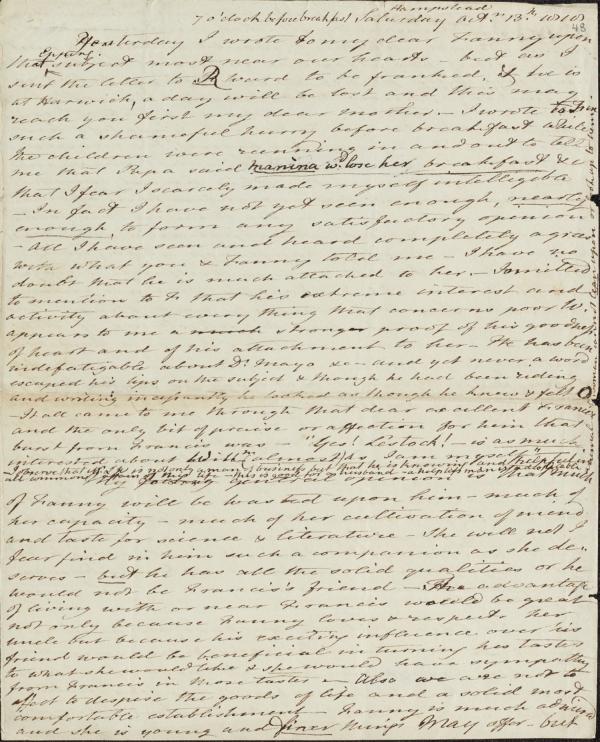 Hampstead
7 o'clock before breakfast Saturday Oct.r 13.th 1818
48
Yesterday I wrote to my dear Fanny upon
Epping
that subject most near our hearts – but as I
sent the letter to R Ward to be franked, if he is
at Harwich, a day will be lost and this may
reach you first my dear mother – I wrote in
such a shameful hurry before breakfast while
the children were running in and out to tell
me that Papa said Manina w.d lose her breakfast &c
that I fear I scarcely made myself intelligible
– In fact I have not yet seen enough, nearly
enough to form any satisfactory opinion
– All I have seen and heard completely agrees
with what you & Fanny told me – I have no
doubt that he is much attached to her – I omitted
to mention to F that his extreme interest and
activity about every thing that concerns poor W.
appears to me a much stronger proof of his goodness
of heart and of his attachment to her – He has been
indefatigable about D.r Mayo &c – and yet never a word
escaped his lips on the subject & though he had been riding
and writing incessantly he looked as though he knew & felt 0
– It all came to me through that dear excellent Francis
and the only bit of praise or affection for him that
burst from Francis was – "Yes! Lestock! – is as much
interested about William almost as I am myself"
that he is not only a man of business but that he is knowing and
all common affairs of life – this is good for a husband – a helpless man is
opinion that much
of Fanny will be wasted upon him – much of
her capacity – much of her cultivation of mind
and taste for science & literature – She will not I
fear find in him such a companion as she de-
serves – but he has all the solid qualities or he
would not be Francis's friend – The advantage
of living with or near Francis would be great
not only because Fanny loves & respects her
uncle but because his exciting influence over his
friend would be beneficial in turning his tastes
to what she would like & she would have sympathy
from Francis in those tastes – Also we are not to
affect to despise the goods of life and a solid most
comfortable establishment – Fanny is much admired
and she is young and finer things may offer – but